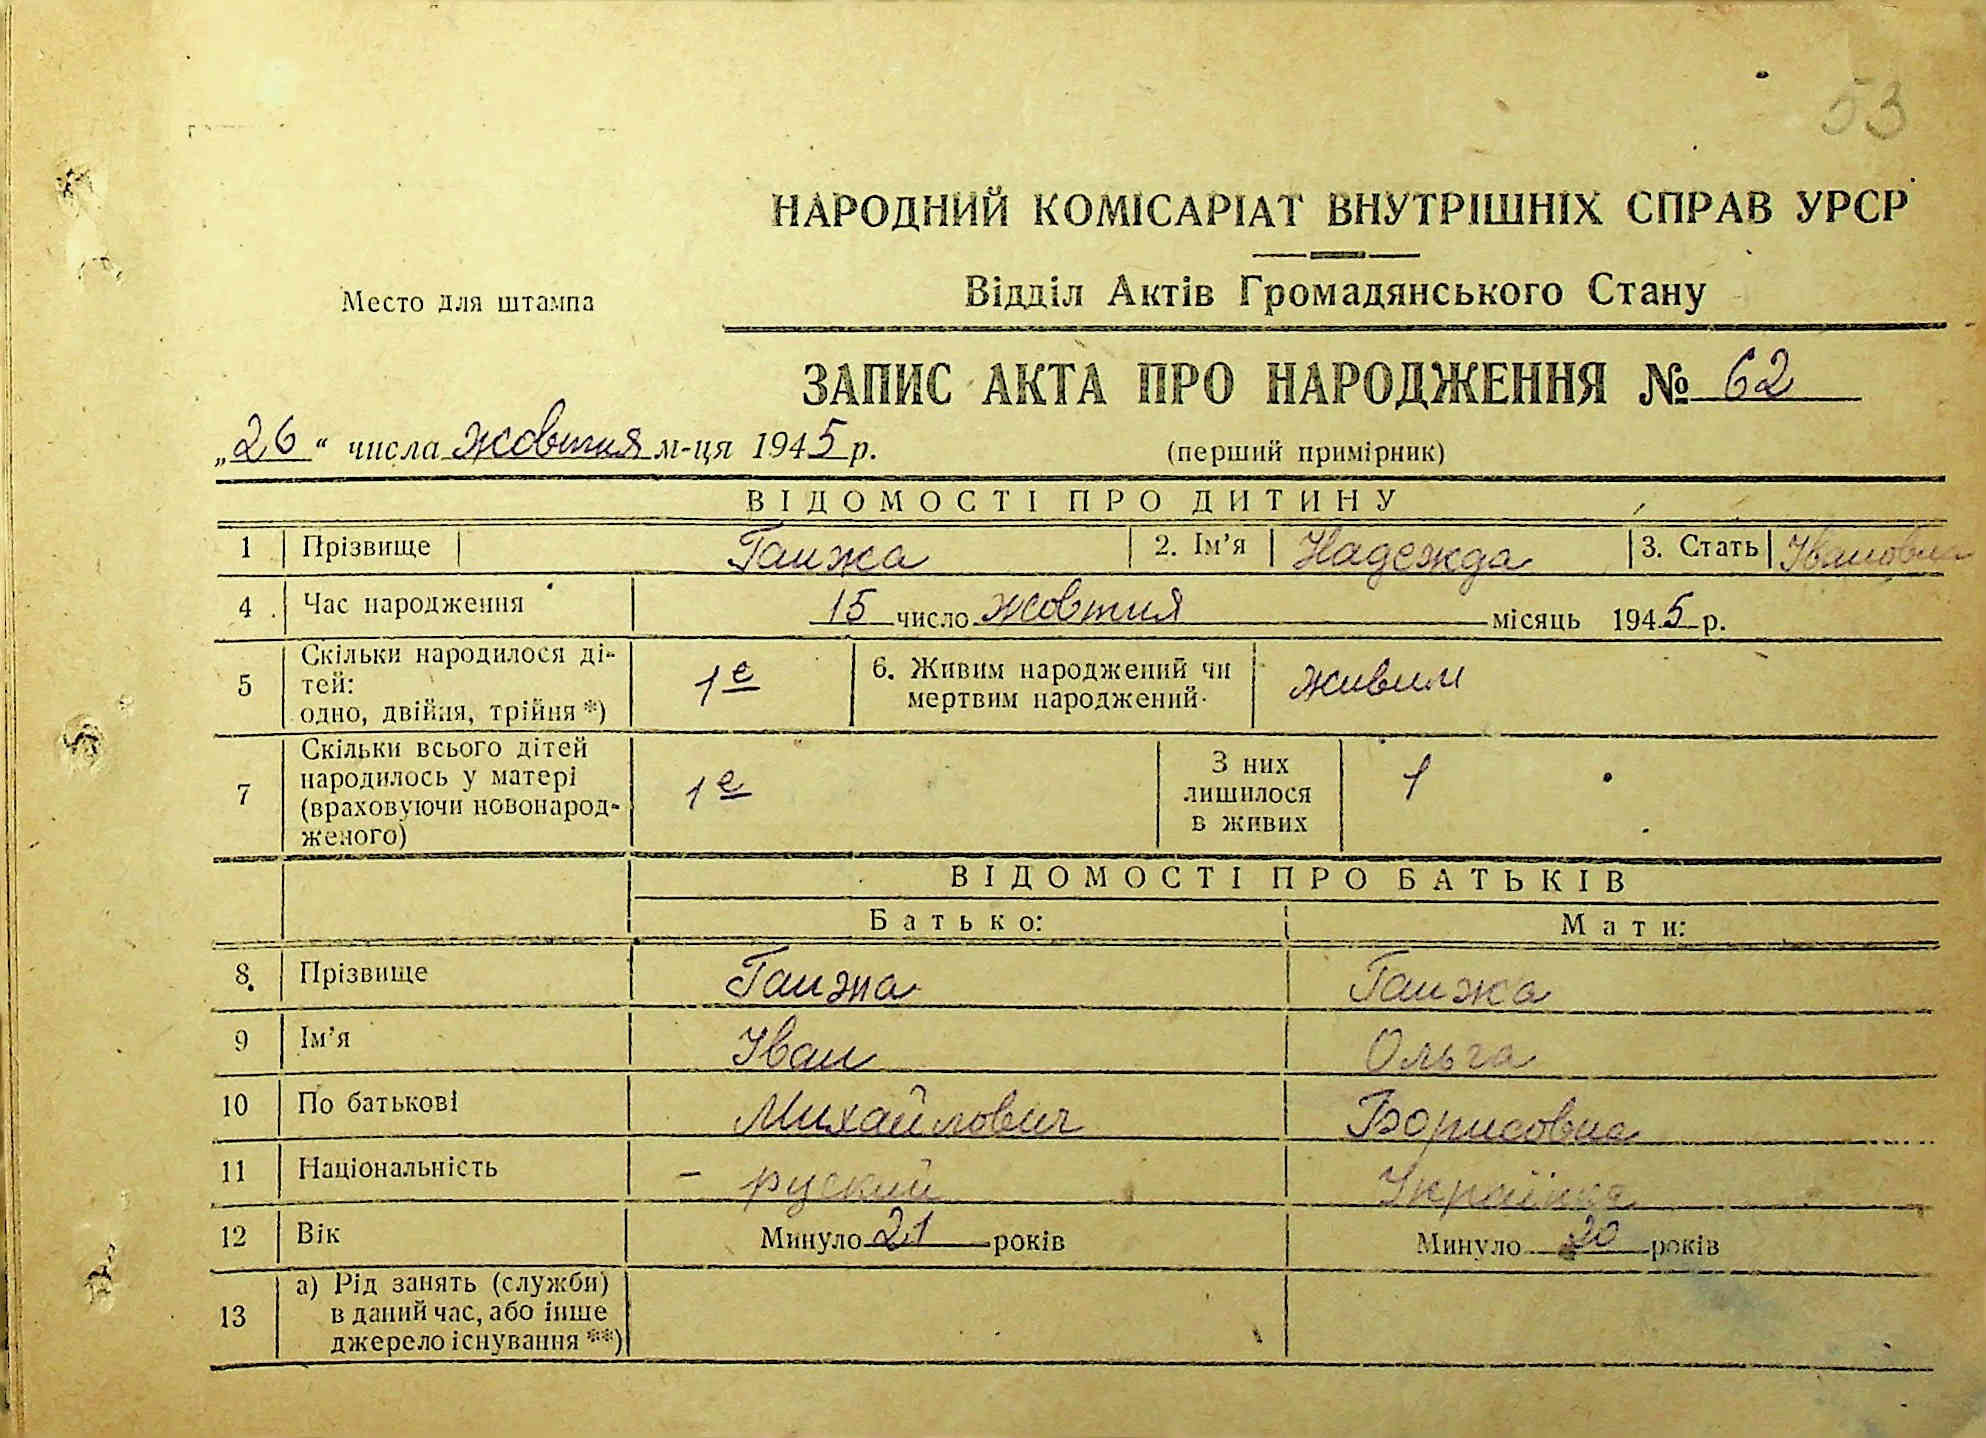 53
НАРОДНИЙ КОМІСАРІАТ ВНУТРІШНІХ СПРАВ УРСР
Место для штампа
Відділ Актів Громадянського Стану
ЗАПИС АКТА ПРО НАРОДЖЕННЯ № 62
„26“ числа жовтня м-ця 1945 р.
(перший примірник)
ВІДОМОСТІ ПРО ДИТИНУ
1 Прізвище Ганжа 2. Ім’я Надежда 3. Стать Івановна
4 Час народження 15 число жовтня місяць 1945 р.
5 Скільки народилося ді-
тей:
одно, двійня, трійня *)
1е
6. Живим народжений чи
мертвим народжений
живим
7 Скільки всього дітей
народилось у матері
(враховуючи новонарод-
женого)
1е
З них
лишилося
в живих
1
ВІДОМОСТІ ПРО БАТЬКІВ
Батько: Мати:
8. Прізвище Ганжа Ганжа
9 Ім’я Іван Ольга
10 По батькові Михайлович Борисовна
11 Національність – руский Українка
12 Вік Минуло 21 років Минуло 20 років
13 а) Рід занять (служби)
в даний час, або інше
джерело існування **)